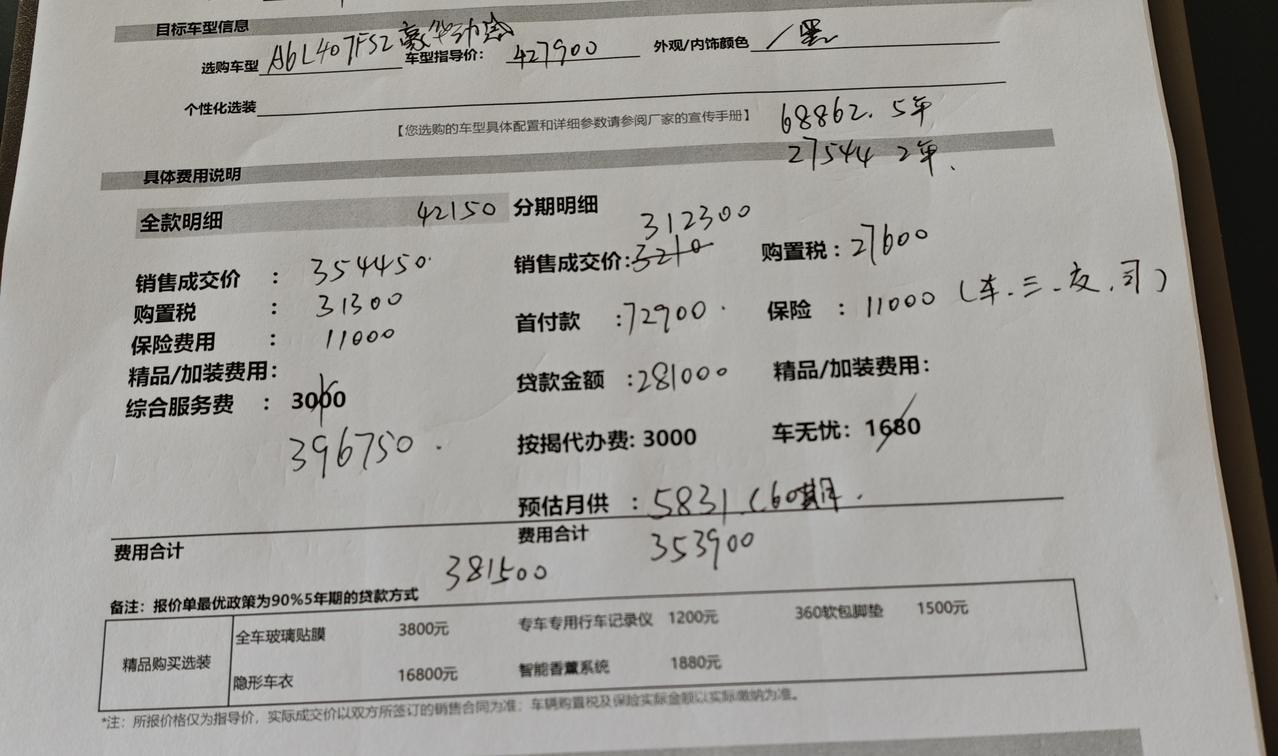 目标车型信息
选购车型 A6L407FS2豪华动感 车型指导价: 427900 外观/内饰颜色 /黑
个性化选装
【您选购的车型具体配置和详细参数请参阅厂家的宣传手册】 68862. 5年
27544 2年.
具体费用说明
全款明细 42150 分期明细
312300
销售成交价 : 354450. 销售成交价: 3210 购置税: 27600
购置税 : 31300
保险费用 : 11000 首付款 :72900. 保险 : 11000 (车.三.友.司)
精品/加装费用:
综合服务费 : 3000 贷款金额 :281000 精品/加装费用:
396750. 按揭代办费: 3000 车无忧: 1680
预估月供 : 5831.(60期.
费用合计 381500 费用合计 353900
备注: 报价单最优政策为90%5年期的贷款方式
精品购买选装
全车玻璃贴膜 3800元 专车专用行车记录仪 1200元 360软包脚垫 1500元
隐形车衣 16800元 智能香薰系统 1880元
*注: 所报价格仅为指导价, 实际成交价以双方所签订的销售合同为准; 车辆购置税及保险实际金额以实际缴纳为准。